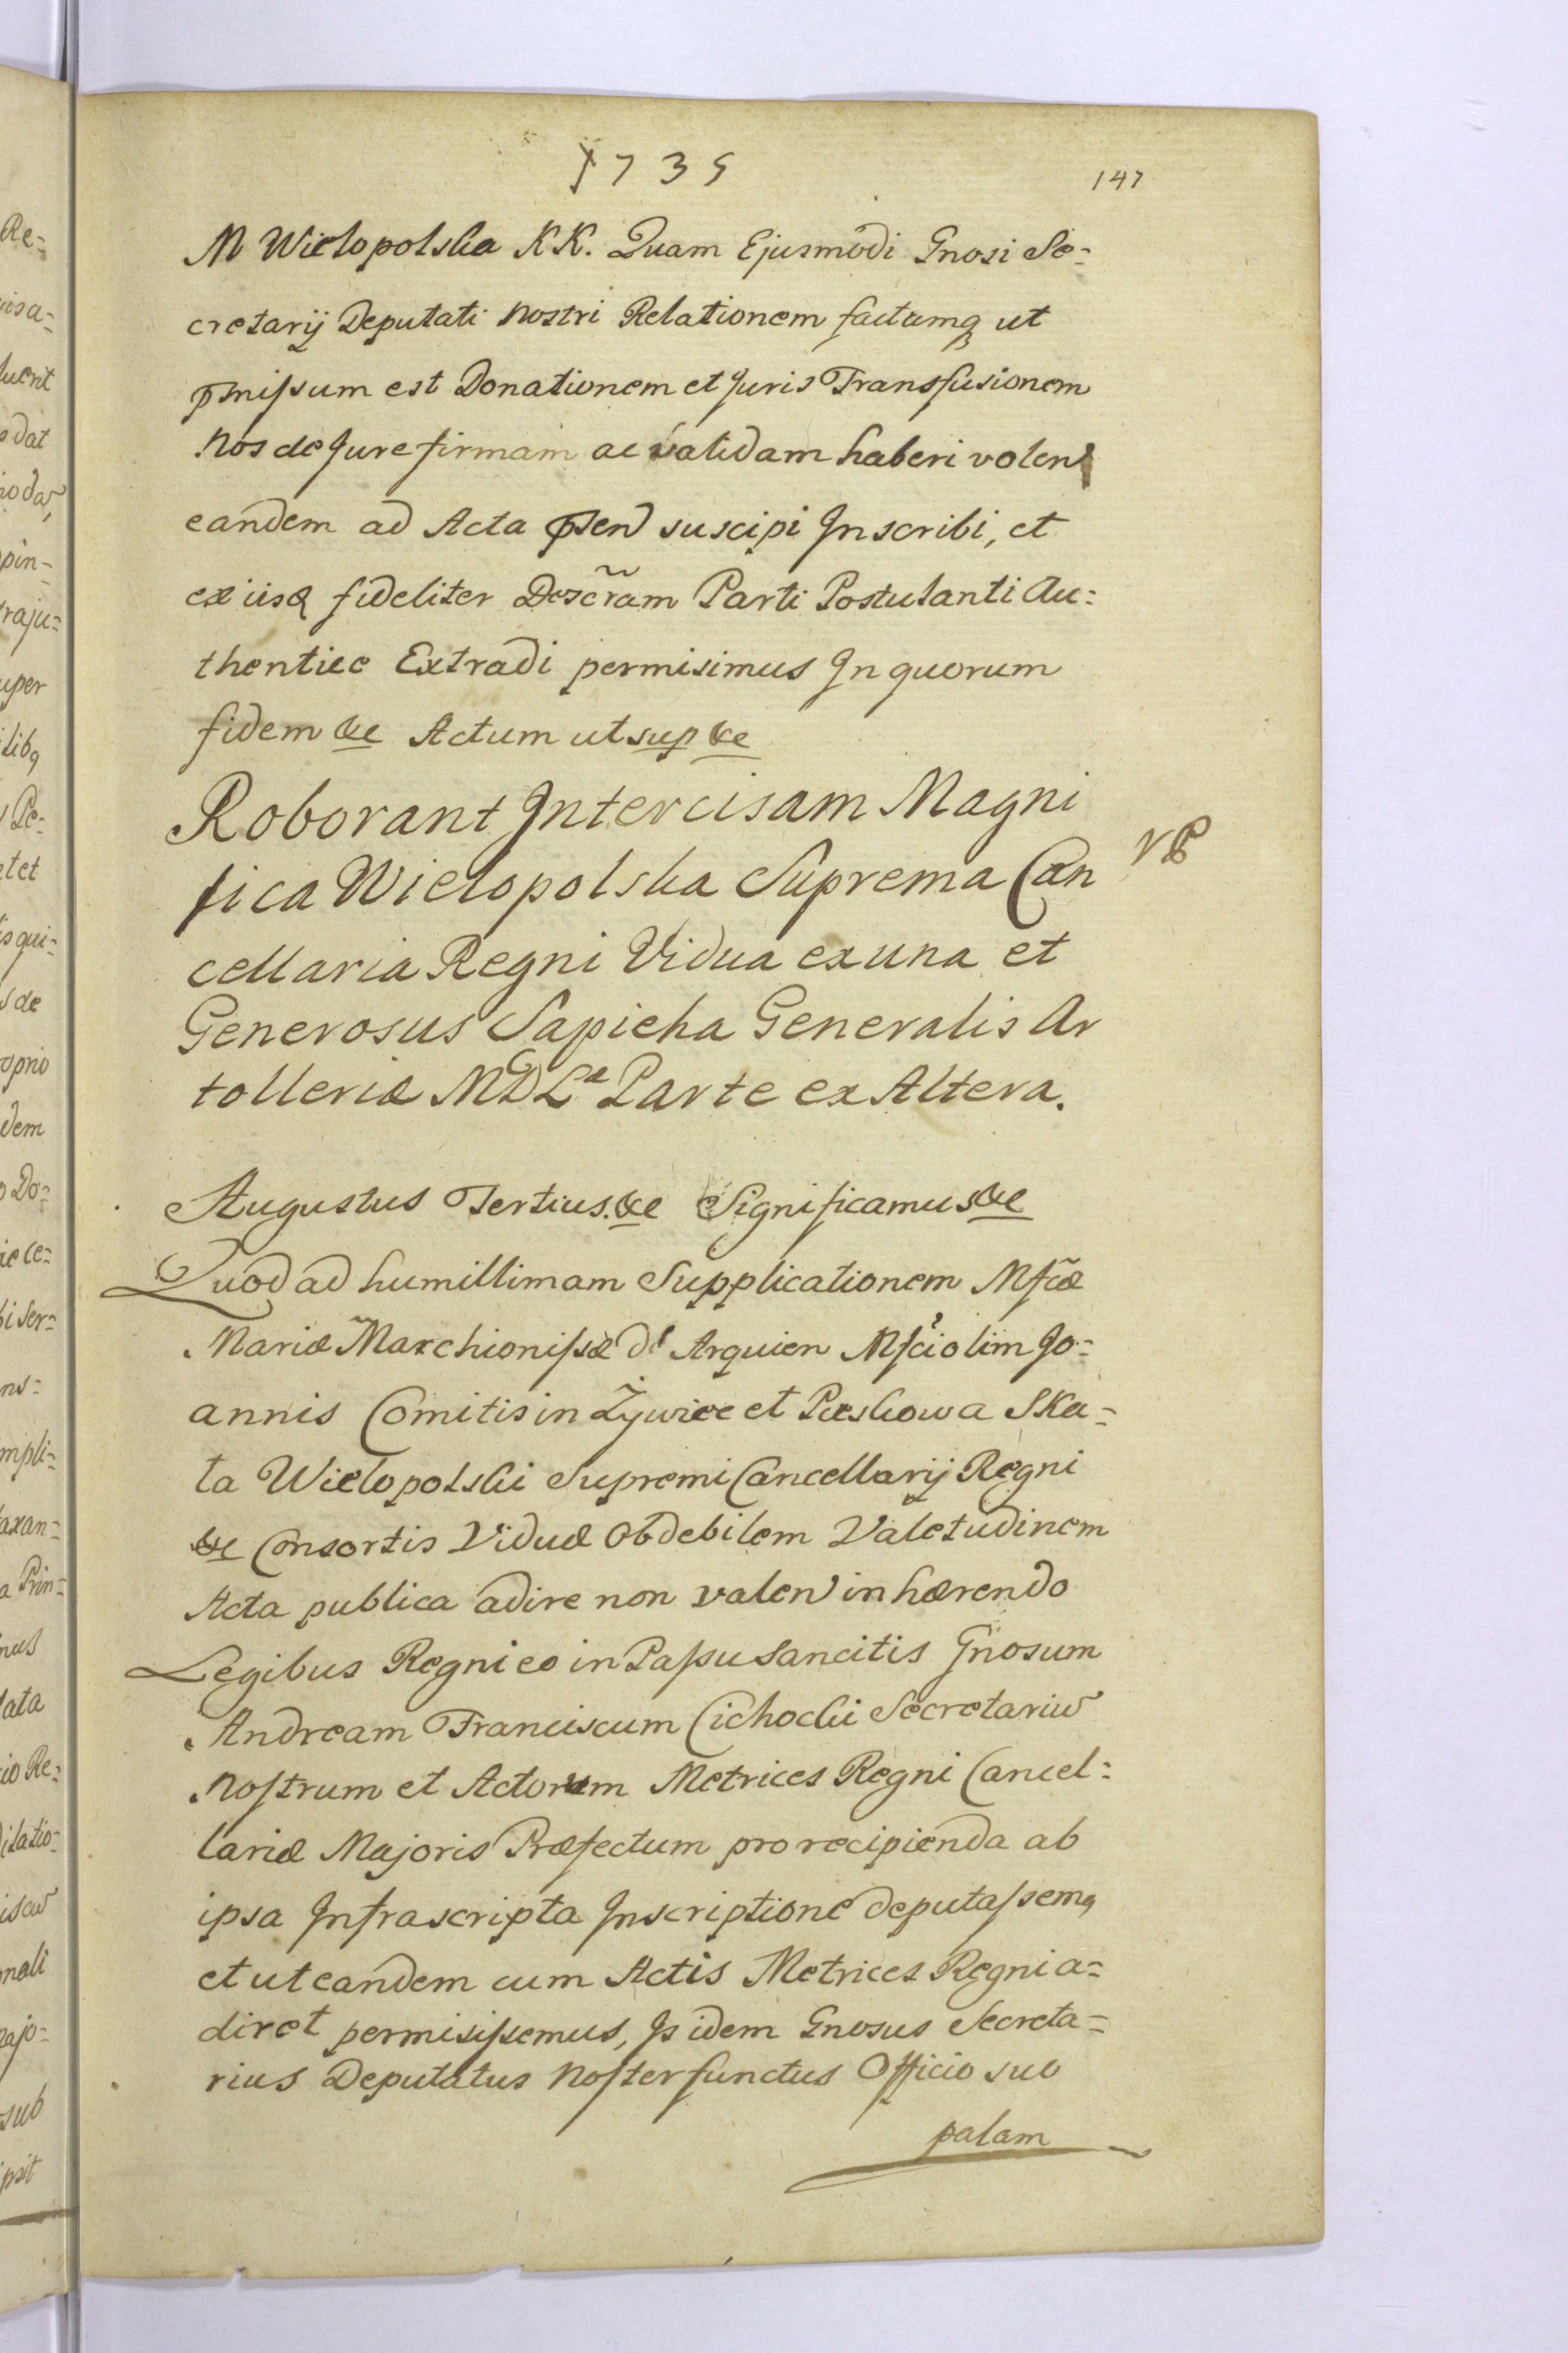 1735
147
M Wielopolska KK. Quam Ejusmodi Gnosi Se=
cretarij Deputati Nostri Relationem factamq ut
pmissum est Donationem et Juris Transfusionem
Nos de Jure firmam ac validam haberi volen
eandem ad Acta psen suscipi Inscribi, et
ex iisd fideliter Descr̃am Parti Postulanti Au=
thentice Extradi permisimus In quorum
fidem &c Actum ut sup &c
Roborant Intercisam Magni
fica Wielopolska Suprema Can
cellaria Regni Vidua ex una et
Generosus Sapieha Generalis Ar
tolleriæ MDL Parte ex Altera.
Augustus Tertius. &c Significamus &c
Quod ad humillimam Supplicationem Mfcæ
Mariæ Marchionissæ d' Arquien Mfci olim Jo=
annis Comitis in Żywiec et Pieskowa Ska=
ła Wielopolski Supremi Cancellarij Regni
&c Consortis Viduæ Ob debilem Valetudinem
Acta publica adire non valen inhærendo
Legibus Regni eo in Passu Sancitis Gnosum
Andream Franciscum Cichocki Secretariu
Nostrum et Actorum Metrices Regni Cancel=
lariæ Majoris Præfectum pro recipienda ab
ipsa Infrascripta Inscriptione deputassemq
et ut eandem cum Actis Metrices Regni a=
diret permisissemus, Is idem Gnosus Secreta=
rius Deputatus Noster functus Officio suo
palam